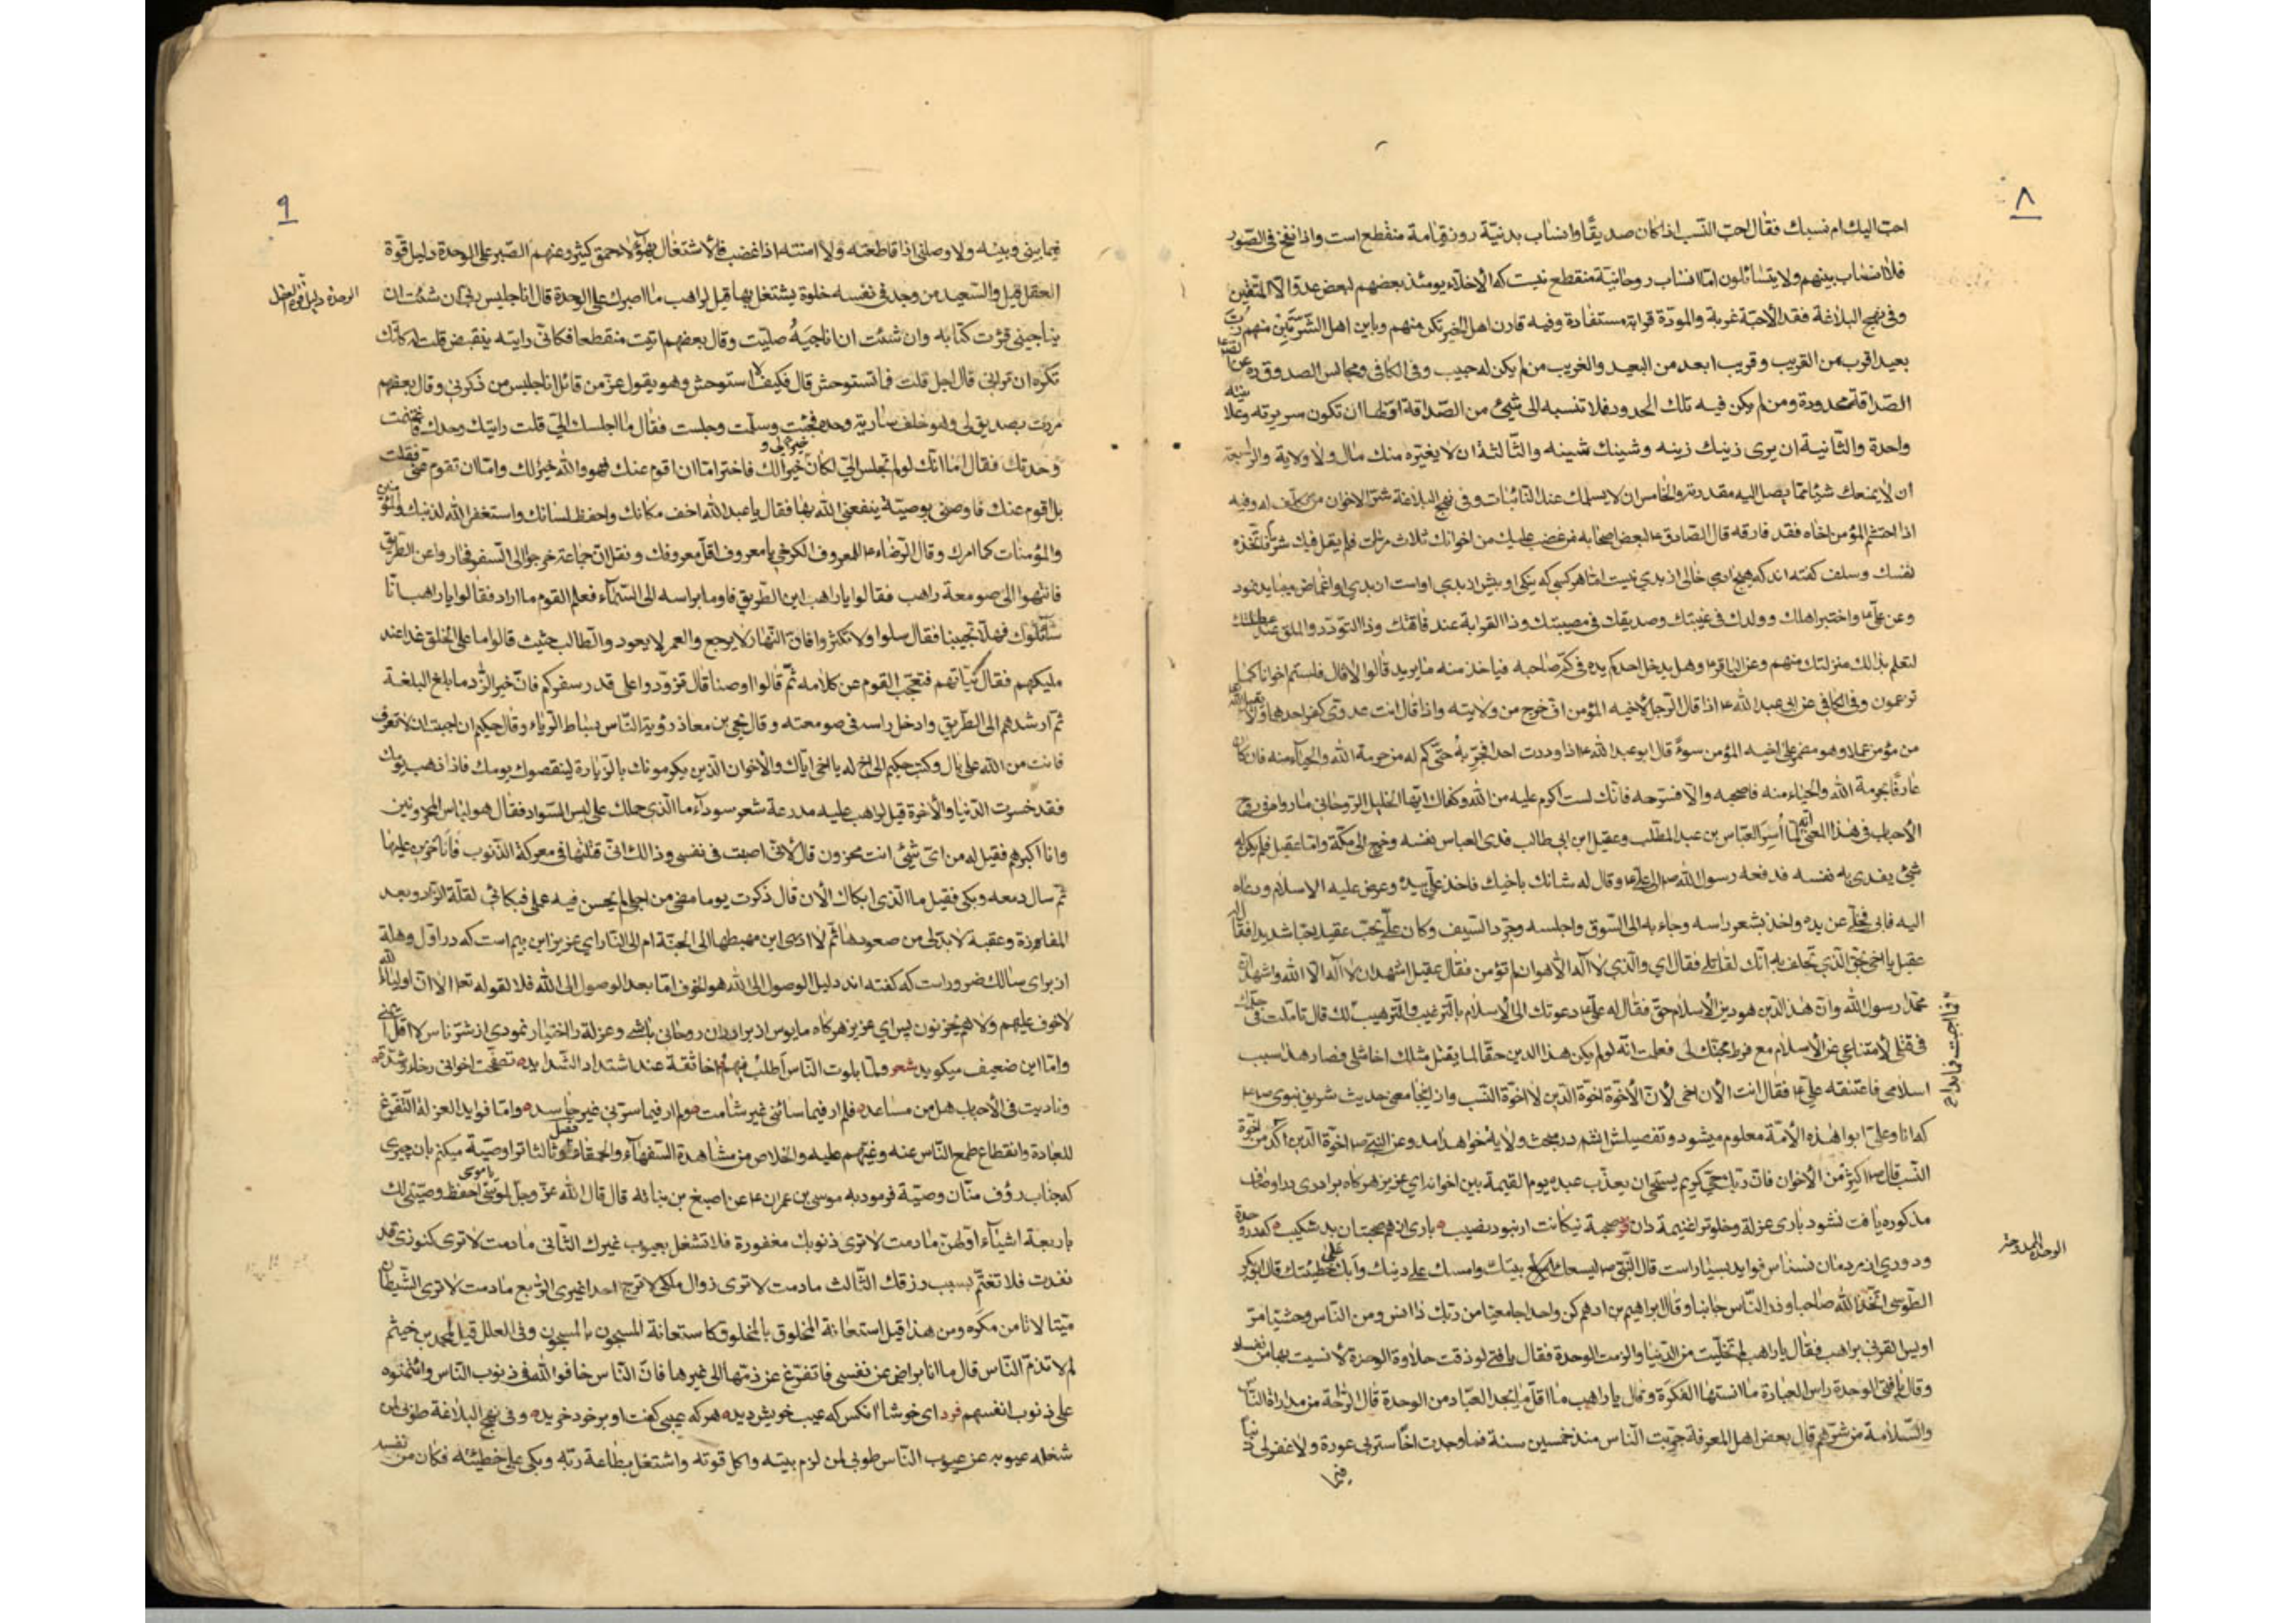 ٨
احبّ اليك ام نسبك فقال احبّ النّسب اذا كان صديقًا وانساب بدنيّة روز قيامة منقطع است واذا نفخ فى الصّور
فلا انساب بينهم ولا يتسائلون امّا انساب روحانيّة منقطع نيست كه الأخلاّء يومئذ بعضهم لبعض عدوّ الاّ المتّقين
وفى نهج البلاغة فقد الأحبّة غربة والمودّة قرابة مستفادة وفيه قارن اهل الخير تكن منهم وباين اهل الشّرّ تبن منهم ربّ
بعيد اقرب من القريب وقريب ابعد من البعيد والغريب من لم يكن له حبيب وفى الكافى ومجالس الصدوق ره عن الصّ
الصّداقة محدودة ومن لم يكن فيه تلك الحدود فلا تنسبه الى شيئ من الصّداقة اوّلها ان تكون سريرته وعلانيته
واحدة والثّانية ان يرى زينك زينه وشينك شينه والثّالثة ان لا يغيّره منك مال ولا ولاية والرّابعة
ان لا يمنعك شيئا ممّا يصل اليه مقدرته والخامس ان لا يسلمك عند النّائبات وفى نهج البلاغة شرّ الاخوان من تكلّف له وفيه
اذا احتشم المؤمن اخاه فقد فارقه قال الصّادق ع لبعض اصحابه من غضب عليك من اخوانك ثلاث مرّات فلم يقل فيك شرّا فاتّخذه
لنفسك وسلف كفته اند كه هيچ ادمى خالى از بدى نيست امّا هر كسى كه نيكى او بيش از بدى او است از بدى او اغماض ميبايد نمود
وعن علىّ ع واختبر اهلك وولدك فى غيبتك وصديقك فى مصيبتك وذا القرابة عند فاقتك وذا التودّد والملق عند عطلتك
لتعلم بذلك منزلتك منهم وعن الباقر ع وهل يدخل احدكم يده فى كمّ صاحبه فياخذ منه ما يريد قالوا لا قال فلستم اخوانا كما
تزعمون وفى الكافى عن ابى عبد الله ع اذا قال الرّجل لأخيه المؤمن افّ خرج من ولايته واذا قال انت عدوّى كفر احدهما ولا يقبل الله
من مؤمن عملا وهو مضمر على اخيه المؤمن سوءً قال ابو عبد الله ع اذا وددت احدا فجرّبه حتّى كم له من حرمة الله والحياء منه فان كان
عارفًا بحرمة الله والحياء منه فاصحبه والاّ فسرّحه فانّك لست اكرم عليه من الله وكفاك ايّها الخليل الرّوحانى ما روى فى روح
الأحباب فى هذا المعنى انّه لمّا اُسر العبّاس بن عبد المطّلب وعقيل ابن ابى طالب فدى العباس نفسه وخرج الى مكّة وامّا عقيل فلم يكن له
شيئ يفدى به نفسه فدفعه رسول الله ص الى علىّ ع وقال له شانك باخيك فاخذ علىّ بيده وعرض عليه الاسلام ودعاه
اليه فابى فخلّى عن يده واخذ بشعر راسه وجاء به الى السّوق واجلسه وجرّد السّيف وكان علىّ يحبّ عقيلا حبّا شديدا فقال له
عقيل يا اخى بحقّ الّذى تحلف به انّك لقاتلى فقال اى والّذى لا اله الاّ هو ان لم تؤمن فقال عقيل اشهد ان لا اله الاّ الله واشهد انّ
محمّدا رسول الله وانّ هذا الدّين هو دين الأسلام حقّ فقال له علىّ ع دعوتك الى الأسلام بالتّرغيب والتّرهيب لك قال تاملت فى جدّك
فما اجبت فما بداح
فى قتلى لأمتناعى عن الأسلام مع فرط محبّتك لى فعلمت انّه لو لم يكن هذا الدين حقّا لما يقتل مثلك اخا مثلى فصار هذا سبب
اسلامى فاعتنقه علىّ ع فقال انت الأن اخى لأنّ الأخوّة اخوّة الدّين لا اخوّة النّسب واز اينجا معنى حديث شريف نبوى ص
كه انا وعلىّ ابوا هذه الأمّة معلوم ميشود وتفصيلش انشم در مبحث ولاية خواهد امد وعن النّبىّ ص اخوّة الدين اكد من اخوّة
النّسب قال ص اكثر من الأخوان فانّ ربّك حىّ كريم يستحى ان يعذّب عبده يوم القيمة بين اخوانه اى عزيز هر كاه برادرى در اوصاف
مذكوره يافت نشود بارى عزلة وخلوة را غنيمة دان فرد صحبة نيكانت ار نبود نصيب بارى از هم صحبتان بد شكيب كه در وحدة
الوحدة الممدوحة
ودورى از مردمان نسناس فوايد بسيار است قال النّبّى ص ليسعك بيتك وامسك عليك دينك وابك على خطيئتك قال ابو بكر
الطّوسى اتّخذ الله صاحبا وذر النّاس جانبا وقال ابراهيم بن ادهم كن واحدا جامعيّا من ربّك ذا انس ومن النّاس وحشيّا مرّ
اويس القرنى براهب فقال يا راهب لم تخلّيت من الدّنيا والزمت الوحدة فقال يا فتى لو ذقت حلاوة الوحدة لأنست بها من نفسك
وقال يا فتى الوحدة راس العبادة ما انستها الفكرة وقال يا راهب ما اقلّ ما يجد العبّاد من الوحدة قال الرّاحة من مداراة النّاس
والسّلامة من شرّهم قال بعض اهل المعرفة جرّبت النّاس منذ خمسين سنة فما وجدت اخًا ستر بى عورة ولا غفر لى ذنبا
فيما
٩
فيما بينى وبينه ولا وصلنى اذا قاطعته ولا امنته اذا غضب فالاشتغال بهؤلاء حمق كثير وعنهم الصّبر على الوحدة دليل قوّة
العقل قيل والسّعيد من وجد فى نفسه خلوة يشتغل بها قيل لراهب ما اصبرك على الوحدة قال انا جليس ربّى ان شئت ان
الوحدة دليل قوّة العقل
يناجينى قرئت كتابه وان شئت ان اناجيَهُ صلّيت وقال بعضهم اتيت منقطعا فكانّى رايته ينقبض قلت له كانّك
تكره ان ترانى قال اجل قلت فما تستوحش قال فكيف لا استوحش وهو يقول عزّ من قائل انا جليس من ذكرنى وقال بعضهم
مررت بصديق لى وهو خلف سارية وحده فجئت وسلّمت وجلست فقال ما اجلسك الىّ قلت رايتك وحدك فاغتنمت
وحدتك فقال اما انّك لو لم تجلس الىّ لكان خيرا لى وخيرا لك فاختر امّا ان اقوم عنك فهو والله خير لك وامّا ان تقوم عنّى فقلت
بل اقوم عنك فاوصنى بوصيّة ينفعنى الله بها فقال يا عبد الله اخف مكانك واحفظ لسانك واستغفر الله لذنبك وللمؤمنين
والمؤمنات كما امرك وقال الرّضاء ع للمعروف الكرخى يا معروف اقلّ معروفك ونقل انّ جماعة خرجوا الى السّفر فحاروا عن الطّريق
فانتهوا الى صومعة راهب فقالوا يا راهب اين الطّريق فاوما براسه الى السّماء فعلم القوم ما اراد فقالوا يا راهب انّا
سائلوك فهلا تجيبنا فقال سلوا ولا تكثروا فانّ النّهار لا يرجع والعمر لا يعود والطّالب حثيث قالوا ما على الخلق غدا عند
مليكهم فقال نيّاتهم فتعجّب القوم من كلامه ثمّ قالوا اوصنا قال تزوّدوا على قدر سفركم فانّ خير الزّاد ما بلغ البلغة
ثمّ ارشدهم الى الطّريق وادخل راسه فى صومعته وقال يحيى بن معاذ رؤية النّاس بساط الرّياء وقال حكيم ان احببت ان لا تعرف
فانت من الله على بال وكتب حكيم الى اخ له يا اخى ايّاك والأخوان الّذين يكرمونك بالزّيارة لينقصوك يومك فاذا ذهب يومك
فقد خسرت الدّنيا والأخرة قيل لراهب عليه مدرعة شعر سوداء ما الّذى حملك على لبس السّواد فقال هو لباس المحزونين
وانا اكبرهم فقيل له من اىّ شيئ انت محزون قال لأنّى اصبت فى نفسى وذالك انّى قتلتها فى معركة الذّنوب فانا حزين عليها
ثمّ سال دمعه وبكى فقيل ما الّذى ابكاك الأن قال ذكرت يوما مضى من اجلى لم يحسن فيه عملى فبكائى لقلّة الزّاد وبعد
المفازة وعقبة لا بدّ لى من صعودها ثمّ لا ادرى اين مهبطها الى الجنّة ام الى النّار اى عزيز اين بيم است كه در اوّل وهلة
از براى سالك ضرور است كه كفته اند دليل الوصول الى الله هو الخوف امّا بعد الوصول الى الله فلا لقوله تعا الا انّ اولياء الله
لاخوف عليهم ولا هم يحزنون پس اى عزيز هر كاه مايوس از برادران روحانى باشى وعزلة را اختيار نمودى از شرّ ناس لا اقلّ
وامّا اين ضعيف ميكويد شعر ولمّا بلوت النّاس اطلب منهم اخا ثقة عند اشتداد الشّدايد تصفّحت اخوانى رخاء وشدّة
وناديت فى الأحياء هل من مساعد فلم ار فيما سائنى غير شامت ولم ار فيما سرّنى غير حاسد وامّا فوايد العزلة التّفرّغ
للعبادة وانقطاع طمع النّاس عنه وغيّهم عليه والخلاص من مشاهدة السّفهاء والحمقاء فصل وثالثا ترا وصيّة ميكنم بان چيزى
كه جناب رؤف منّان وصيّة فرمود به موسى بن عمران ع عن اصبغ بن نباته قال قال الله عزّ وجلّ لموسى يا موسى احفظ وصيّتى لك
باربعة اشياء اوّلهنّ ما دمت لا ترى ذنوبك مغفورة فلا تشغل بعيوب غيرك الثّانى ما دمت لا ترى كنوزى قد
نفدت فلا تغتمّ بسبب رزقك الثّالث ما دمت لا ترى زوال ملكى لا ترج احدا غيرى الرّابع ما دمت لا ترى الشّيطان
ميّتا لا تامن مكره ومن هذا قيل استعانة المخلوق بالمخلوق كاستعانة المسجون بالمسجون وفى العلل قيل لمحمد بن خيثم
لم لا تذمّ النّاس قال ما انا براض عن نفسى فاتفرّغ عن ذمّها الى غيرها فانّ النّاس خافوا الله فى ذنوب النّاس وائتمنوه
على ذنوب انفسهم فرد اى خوشا انكس كه عيب خويش ديد هر كه عيبى كفت او بر خود خريد وفى نهج البلاغة طوبى لمن
شغله عيوبه عن عيوب النّاس طوبى لمن لزم بيته واكل قوته واشتغل بطاعة ربّه وبكى على خطيئته فكان من نفسه